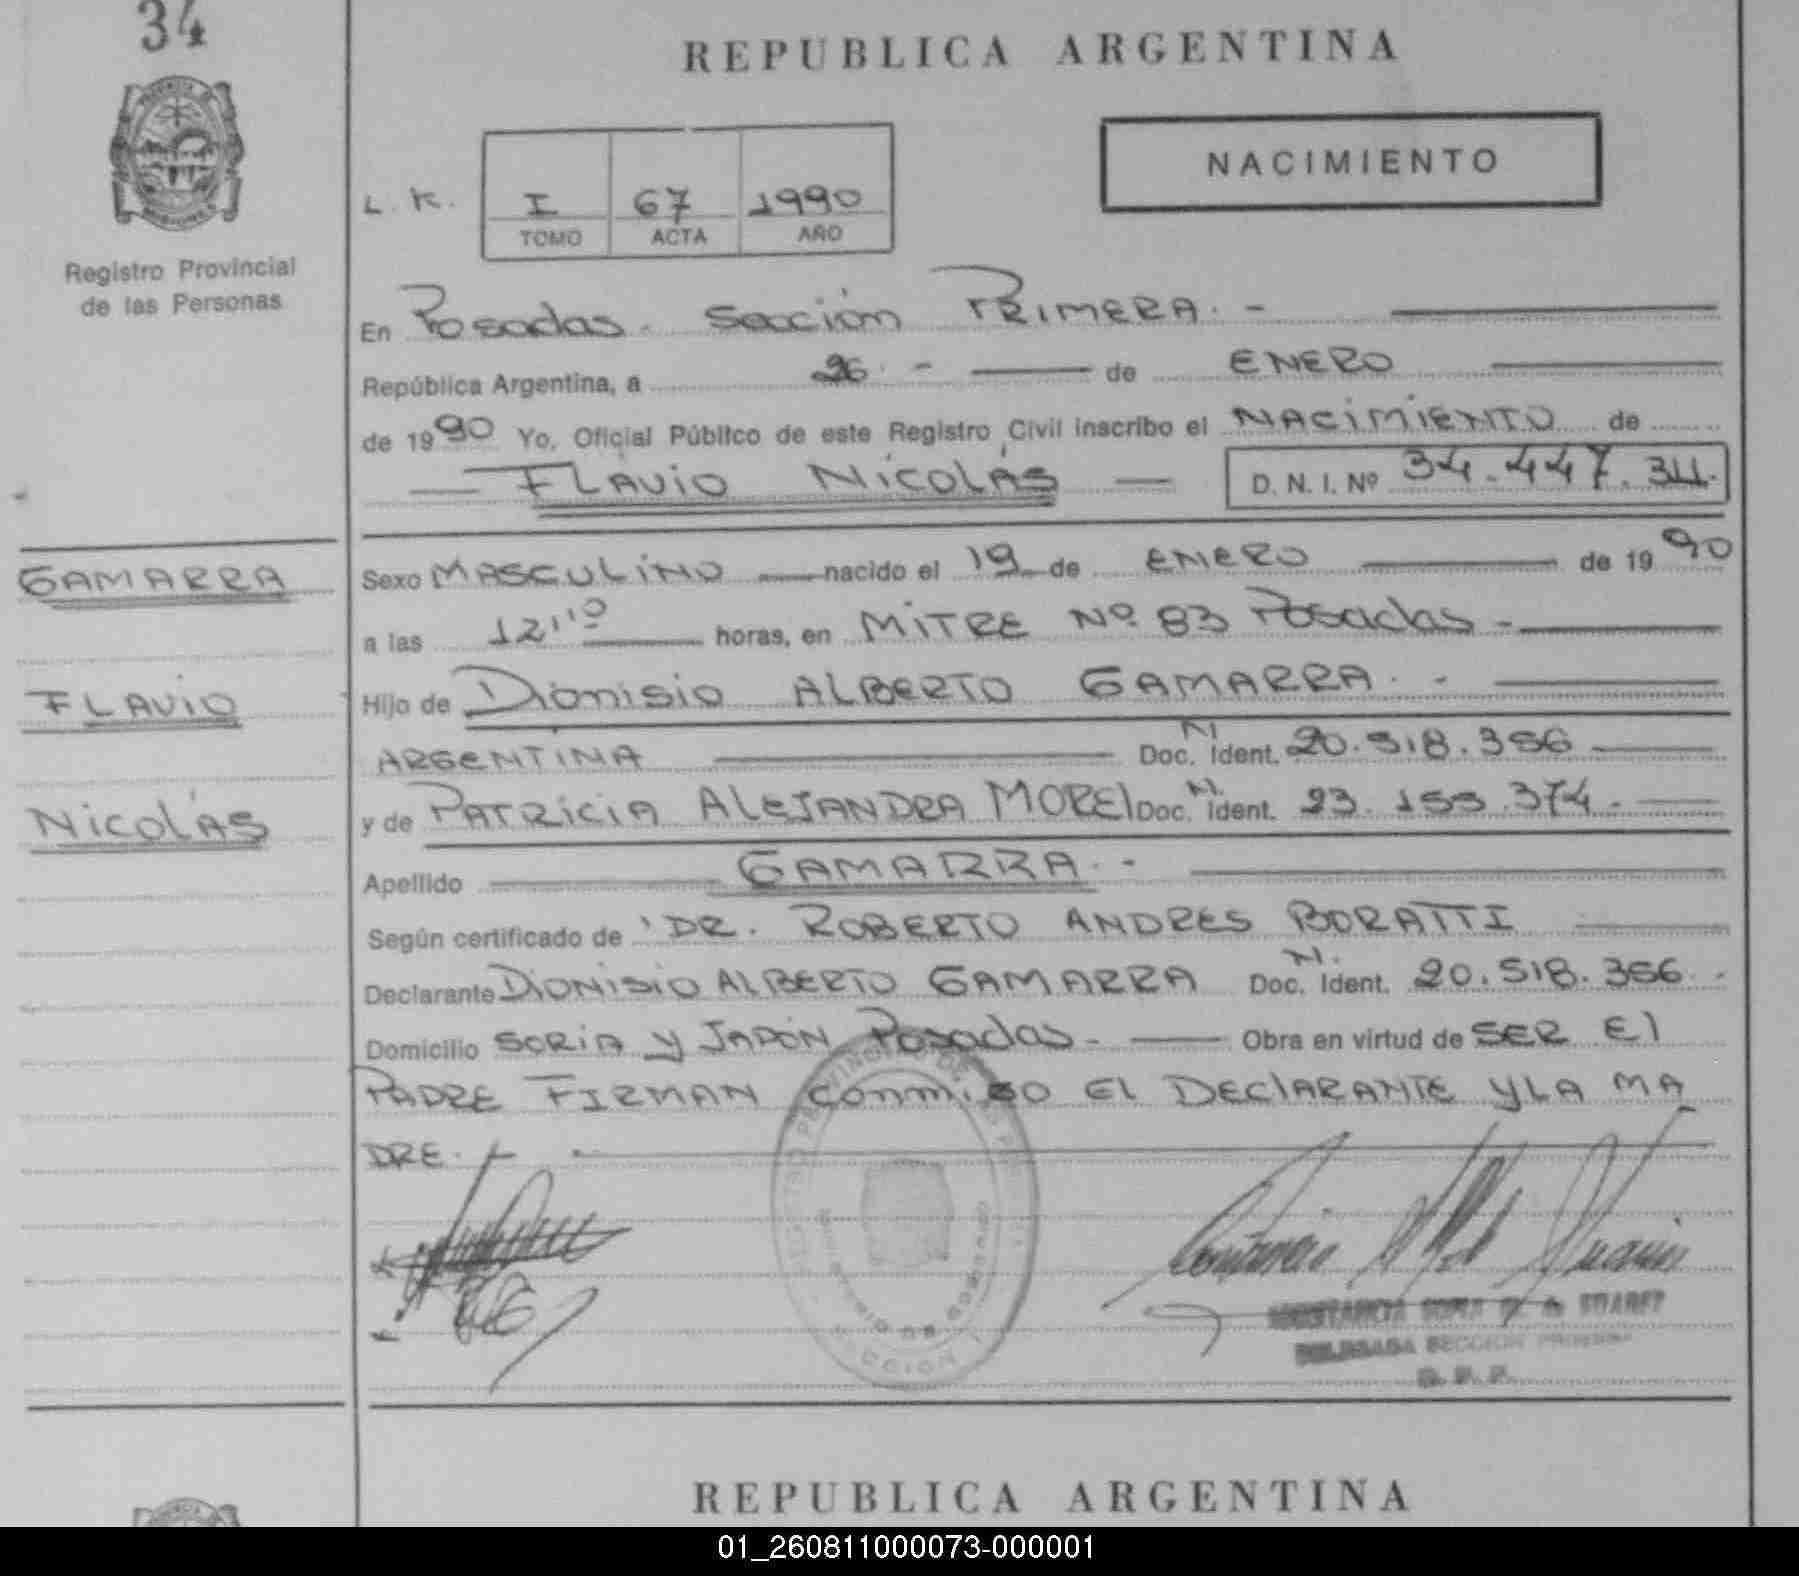 34
REPUBLICA ARGENTINA
NACIMIENTO
L. K. I 67 1990
TOMO ACTA AÑO
Registro Provincial
de las Personas
En Posadas. Sección PRIMERA. -
República Argentina, a 26. - de ENERO
de 1990 Yo, Oficial Público de este Registro Civil inscribo el NACIMIENTO de
FLAVIO NICOLÁS D. N. I. Nº 34.447.311.
GAMARRA
Sexo MASCULINO nacido el 19 de ENERO de 1990
a las 12'10 horas, en MITRE Nº 83 Posadas -
FLAVIO
Hijo de Dionisio ALBERTO GAMARRA. -
ARGENTINA Doc. N. Ident. 20.518.356
NICOLÁS
y de PATRICIA ALEJANDRA MOREl Doc. N. Ident. 23.155.374.
Apellido GAMARRA. -
Según certificado de DR. ROBERTO ANDRES BORATTI
Declarante DIONISIO ALBERTO GAMARRA Doc. N. Ident. 20.518.356.
Domicilio SORIA y JAPÓN Posadas. Obra en virtud de SER El
PADRE FIRMAN conmigo El DEClARANTE y LA MA
DRE. -
SOFIA DE SUAREZ
DELEGADA SECCION PRIMERA
REPUBLICA ARGENTINA
01_260811000073-000001